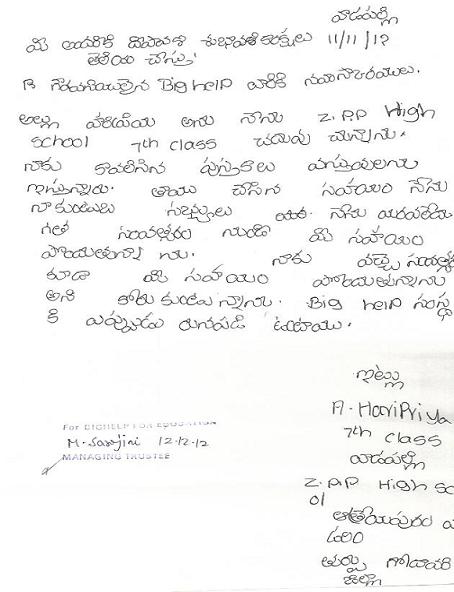 వాడపల్లి
మీ అందరికి దీపావళి శుభాకాంక్షలు 11/11/12
తెలియ చేస్తు
గౌరవనీయులైన Big help వారికి నమస్కారములు.
అల్లు హరిప్రియ అను నేను Z.P.P High
school 7th class చదువు చున్నాను.
నాకు కావలసిన పుస్తకాలు వస్తువులను
ఇస్తున్నారు. తాము చేసిన సహాయం నేను
గత సంవత్సరం నుండి మీ సహాయం
పొందుతున్నా ను. నాకు వచ్చె సంవత్స
కూడా మీ సహాయం పొందుతున్నాను
అని కోరు కుంటు న్నాను. Big help సంస్థ
కి ఎప్పుడు ఋనపడి ఉంటాము.
ఇట్లు
A. HariPriya
7th class
వాడపల్లి
Z.P.P High sc
ol
ఆత్రేయపురం మ
డలం
తూర్పు గోదావరి
జిల్లా
For BIGHELP FOR EDUCATION
M. Sarojini 12-12-12
MANAGING TRUSTEE